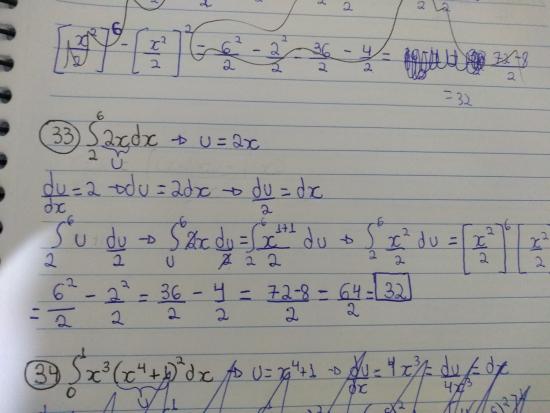 [x²/2]⁶ - [x²/2]² = 6²/2 - 2²/2 - 36/2 - 4/2 = 72-8/2
=32
33 ∫₂⁶ 2x dx → U = 2x
U
du/dx = 2 → du = 2dx → du/2 = dx
∫₂⁶ U du/2 → ∫⁶ 2x du/2 = ∫₂⁶ x¹⁺¹/2 du → ∫₂⁶ x²/2 du = [x²/2]⁶ [x²/2
= 6²/2 - 2²/2 = 36/2 - 4/2 = 72-8/2 = 64/2 = 32
34 ∫₀¹ x³(x⁴+1)² dx → U = x⁴+1 → du/dx = 4x³ = du/4x³ = dx
U